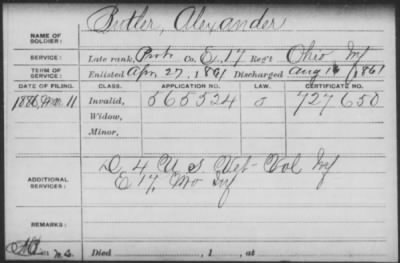 Butler, Alexander
NAME OF SOLDIER:
SERVICE: Late rank, Prvt Co. E, 17 Reg't Ohio Inf
TERM OF SERVICE: Enlisted Apr. 27, 1861 Discharged Aug 1861
DATE OF FILING. CLASS. APPLICATION NO. LAW. CERTIFICATE NO.
1886, 11 Invalid, 565524 727650
Widow,
Minor,
ADDITIONAL SERVICES: D. 4 U. S. Vet Vol Inf
E 17, Mo Inf
REMARKS:
Died , 1 , at